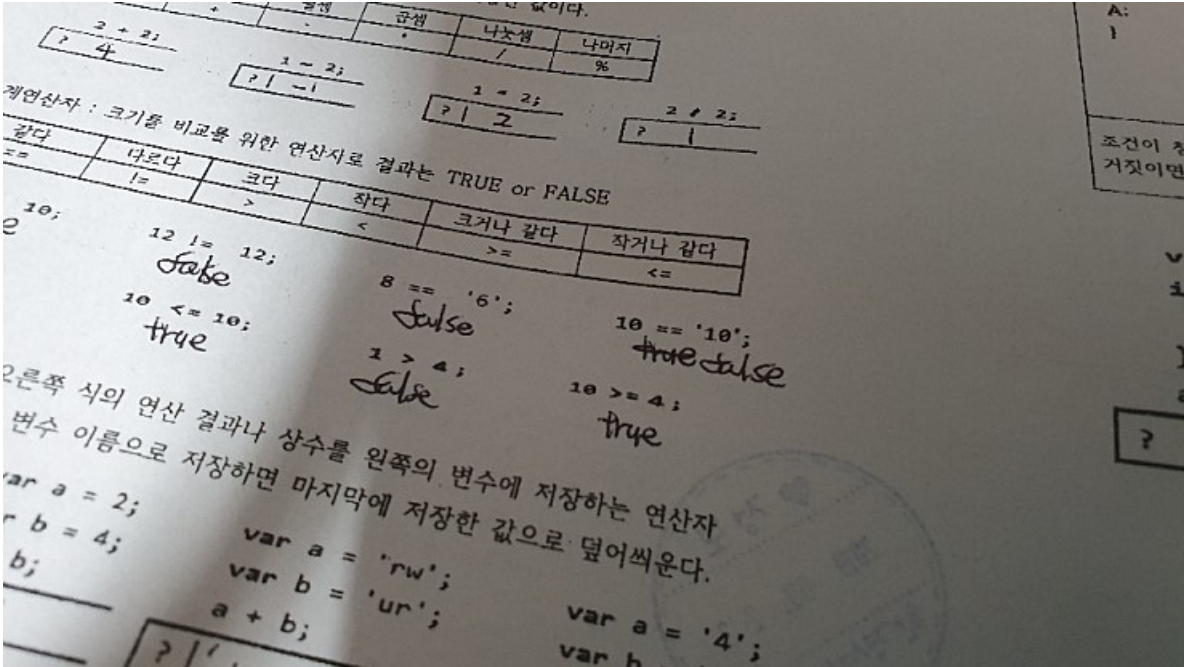 값이다.
+ - 곱셈 나눗셈 나머지
* / %
2 + 2;
? 4
1 - 2;
? -1
1 * 2;
? 2
2 / 2;
? 1
계연산자 : 크기를 비교를 위한 연산자로 결과는 TRUE or FALSE
같다 다르다 크다 작다 크거나 같다 작거나 같다
== != > < >= <=
10;
12 != 12;
false
8 == '6';
false
10 == '10';
true false
10 <= 10;
true
1 > 4;
false
10 >= 4;
true
오른쪽 식의 연산 결과나 상수를 왼쪽의 변수에 저장하는 연산자
변수 이름으로 저장하면 마지막에 저장한 값으로 덮어씌운다.
var a = 2;
r b = 4;
b;
var a = 'rw';
var b = 'ur';
a + b;
?
var a = '4';
var b
A:
}
조건이
거짓이면
?